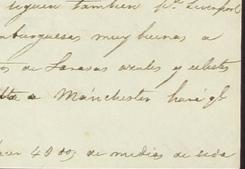 siguen tambien pa. Liverpool
mburguesas muy buenas a
de Sarazas azules y celestes
a Mánchester hará
49 de medias de seda